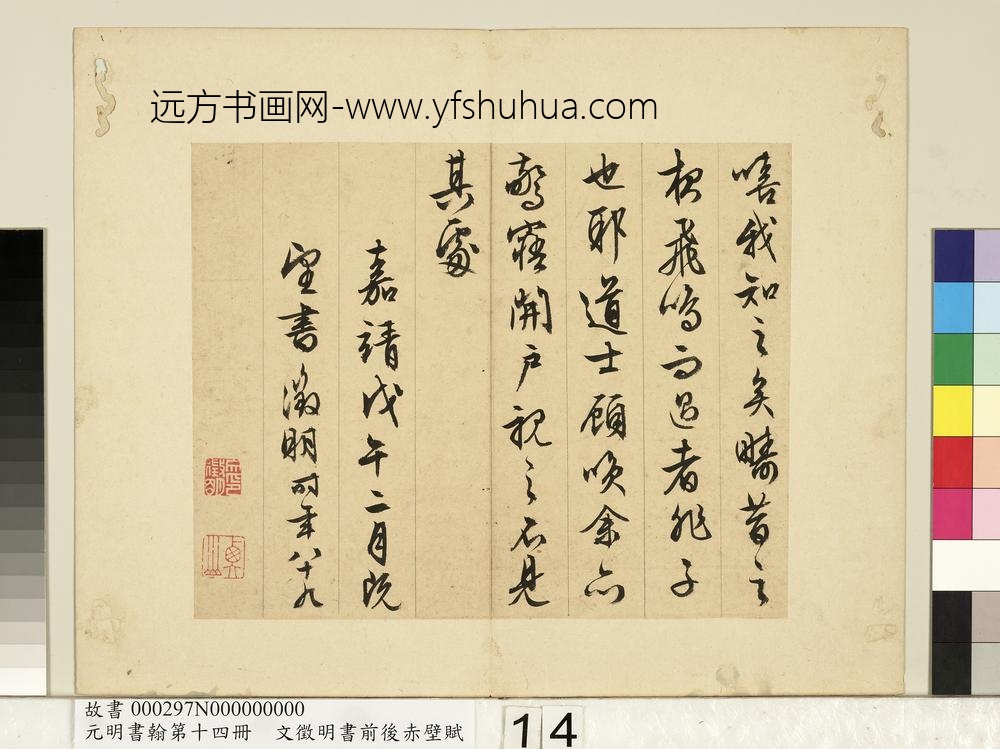 远方书画网-www.yfshuhua.com
嘻我知之矣疇昔之
夜飛鳴而過者非子
也耶道士顧唉余亦
驚寤開戶視之不見
其處
嘉靖戊午二月既
望書徵明時年八十九
故書 000297N000000000
元明書翰第十四冊 文徵明書前後赤壁賦
14